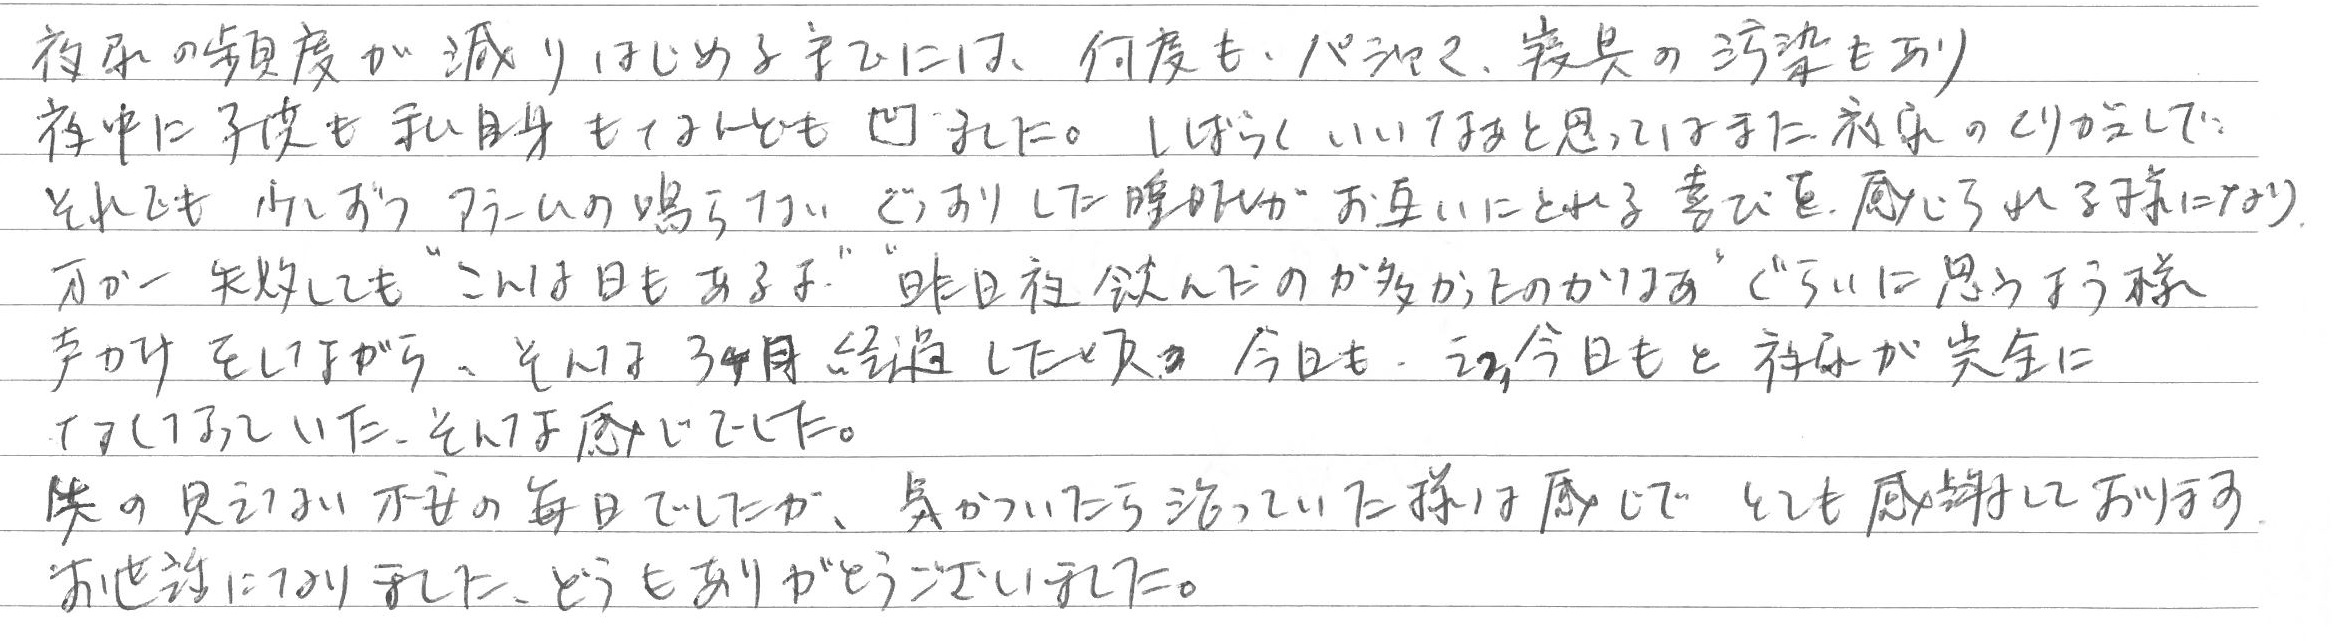 夜尿の頻度が減りはじめるまでには、何度も、パジャマ、寝具の汚染もあり
夜中に子供も私自身もなんども凹ました。しばらくいいなぁと思ってはまた夜尿のくり返しで、
それでも少しずつアラームの鳴らないぐっすりした睡眠がお互いにとれる喜びを、感じられる様になり、
万が一失敗しても“こんな日もあるよ”“昨日夜飲んだのが多かったのかなぁ”ぐらいに思うよう様
声かけをしながら、そんな3ヶ月経過した頃 今日も、今日もと夜尿が完全に
なくなっていた、そんな感じでした。
先の見えない不安の毎日でしたが、気がついたら治っていた様な感じでとても感謝しております。
お世話になりました、どうもありがとうございました。